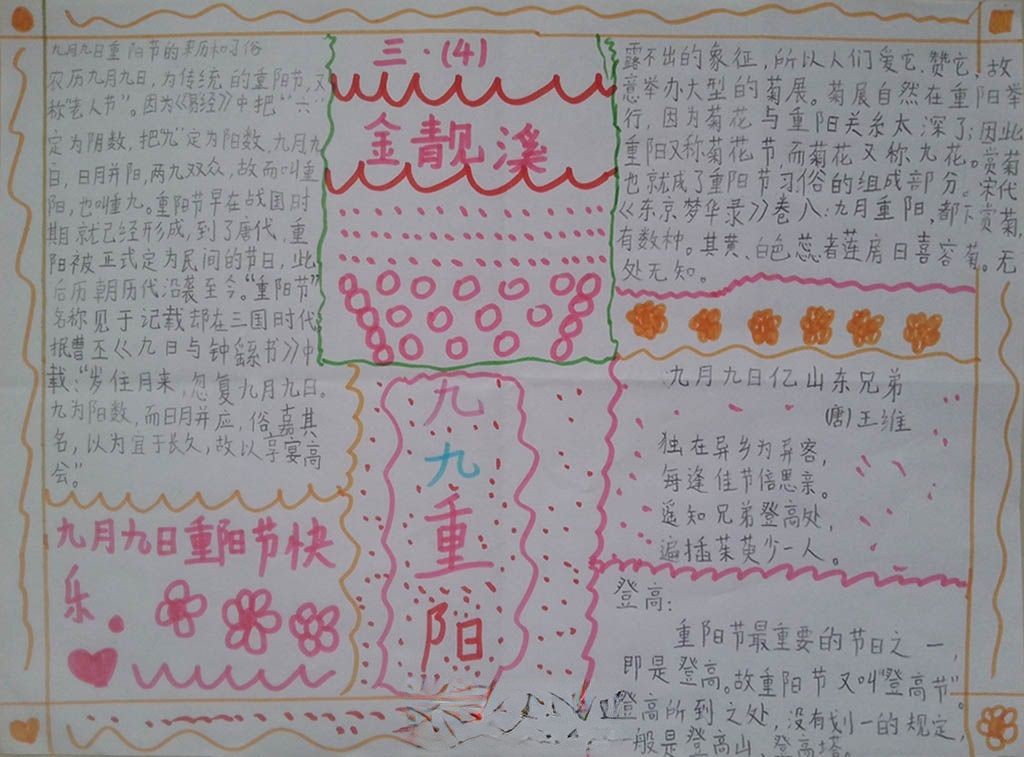 九月九日重阳节的来历和习俗
农历九月九日，为传统的重阳节，又
称"老人节"。因为《易经》中把"六"
定为阴数，把"九"定为阳数，九月九
日，日月并阳，两九双众，故而叫重
阳，也叫重九。重阳节早在战国时
期就已经形成，到了唐代，重
阳被正式定为民间的节日，此
后历朝历代沿袭至今。"重阳节"
名称见于记载却在三国时代
据曹丕《九日与钟繇书》中
载："岁住月来，忽复九月九日。
九为阳数，而日月并应，俗嘉其
名，以为宜于长久，故以享宴高
会。"
九月九日重阳节快
乐。
三·(4)
金靓溪
九
九
重
阳
露不出的象征，所以人们爱它、赞它，故
意举办大型的菊展。菊展自然在重阳举
行，因为菊花与重阳关系太深了；因此
重阳又称菊花节，而菊花又称九花。赏菊
也就成了重阳节习俗的组成部分。宋代
《东京梦华录》卷八：九月重阳，都下赏菊，
有数种。其黄、白色蕊者莲房曰喜容菊。无
处无知。
九月九日亿山东兄弟
(唐)王维
独在异乡为异客，
每逢佳节倍思亲。
遥知兄弟登高处，
遍插茱萸少一人。
登高：
重阳节最重要的节日之一，
即是登高。故重阳节又叫"登高节"。
登高所到之处，没有划一的规定，
一般是登高山、登高塔。